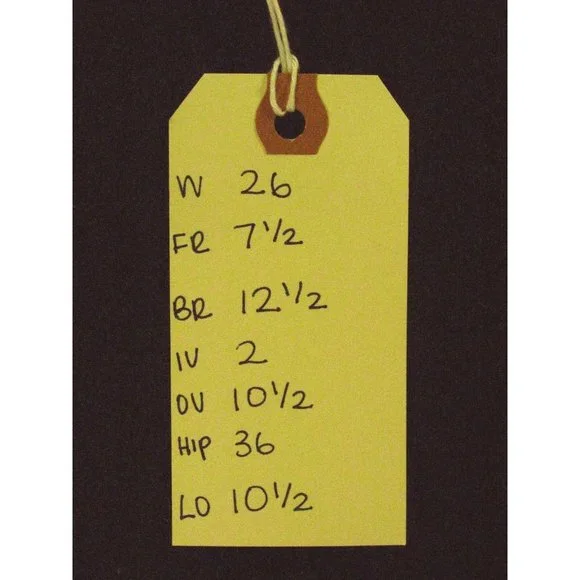 W 26
FR 7 1/2
BR 12 1/2
IV 2
OV 10 1/2
HIP 36
LO 10 1/2